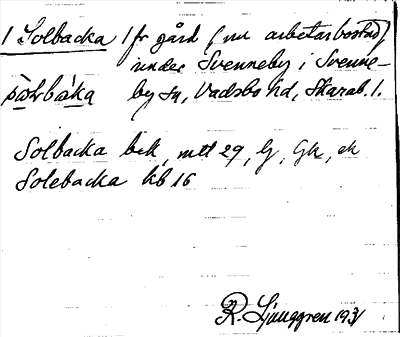 1 Solbacka 1 fr gård (nu arbetarbostad)
under Svenneby i Svenne-
by sn, Vadsbo hd, Skarab. l.
Solbacka bek, mtl 29, G, Gk, ek
Solebacka kb 16
R. Ljunggren 1931